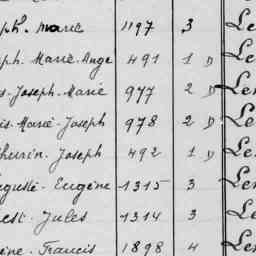 ph. Marie 1197 3 Le
ph. Marie-Ange 491 1 D Le
s-Joseph-Marie 977 2 D Le
is-Marie-Joseph 978 2 D Le
thurin-Joseph 492 1 D Le
uguste-Eugène 1315 3 Le
est-Jules 1314 3 Le
ine-Francis 1898 4 Le